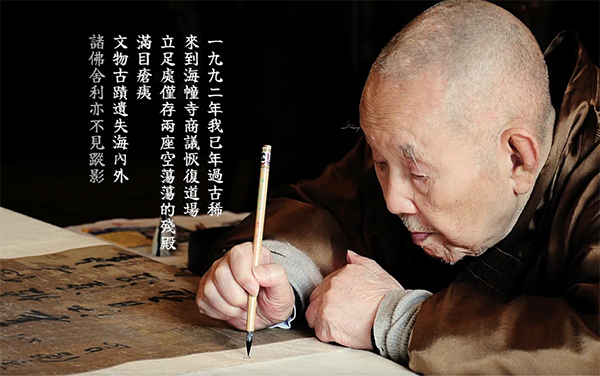 一九九二年我已年過古稀
來到海幢寺商議恢復道場
立足處僅存兩座空蕩蕩的殘殿
滿目瘡痍
文物古蹟遺失海內外
諸佛舍利亦不見蹤影